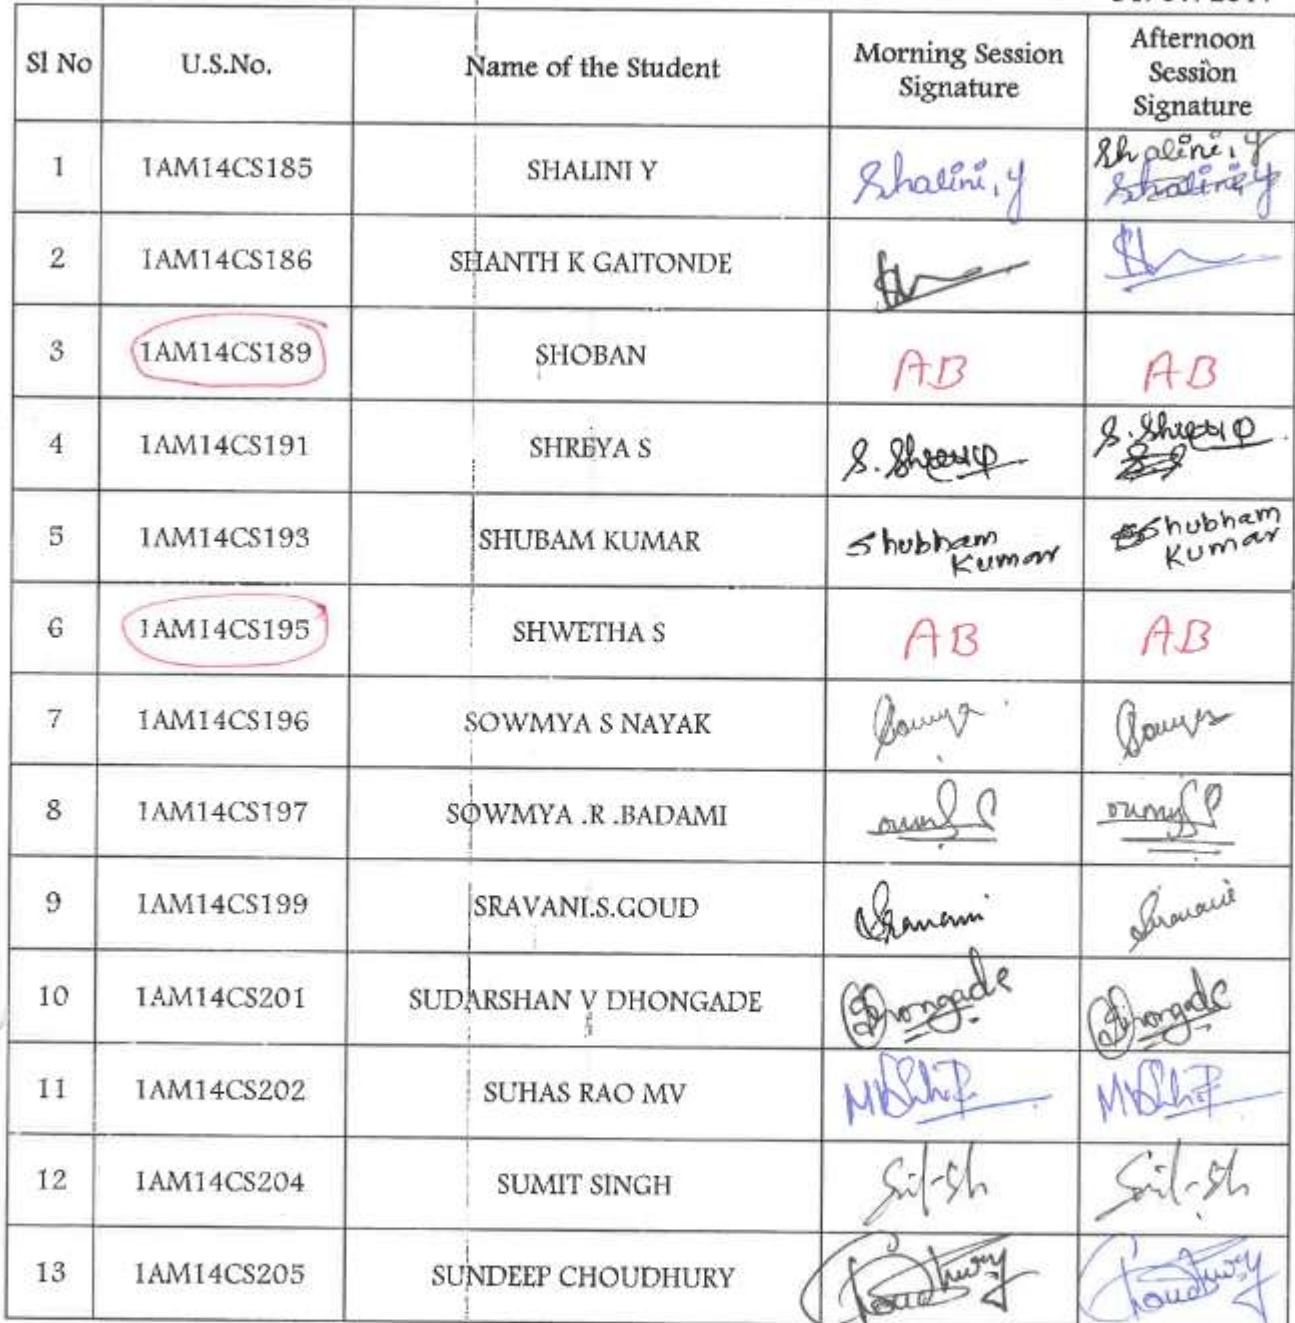 Sl No U.S.No. Name of the Student Morning Session Signature Afternoon Session Signature
1 1AM14CS185 SHALINI Y Shalini, Y Shalini, Y Shalini, Y
2 1AM14CS186 SHANTH K GAITONDE
3 1AM14CS189 SHOBAN AB AB
4 1AM14CS191 SHREYA S
5 1AM14CS193 SHUBAM KUMAR Shubham Kumar Shubham Kumar
6 1AM14CS195 SHWETHA S AB AB
7 1AM14CS196 SOWMYA S NAYAK
8 1AM14CS197 SOWMYA .R .BADAMI
9 1AM14CS199 SRAVANI.S.GOUD
10 1AM14CS201 SUDARSHAN V DHONGADE Dhongade Dhongade
11 1AM14CS202 SUHAS RAO MV
12 1AM14CS204 SUMIT SINGH
13 1AM14CS205 SUNDEEP CHOUDHURY